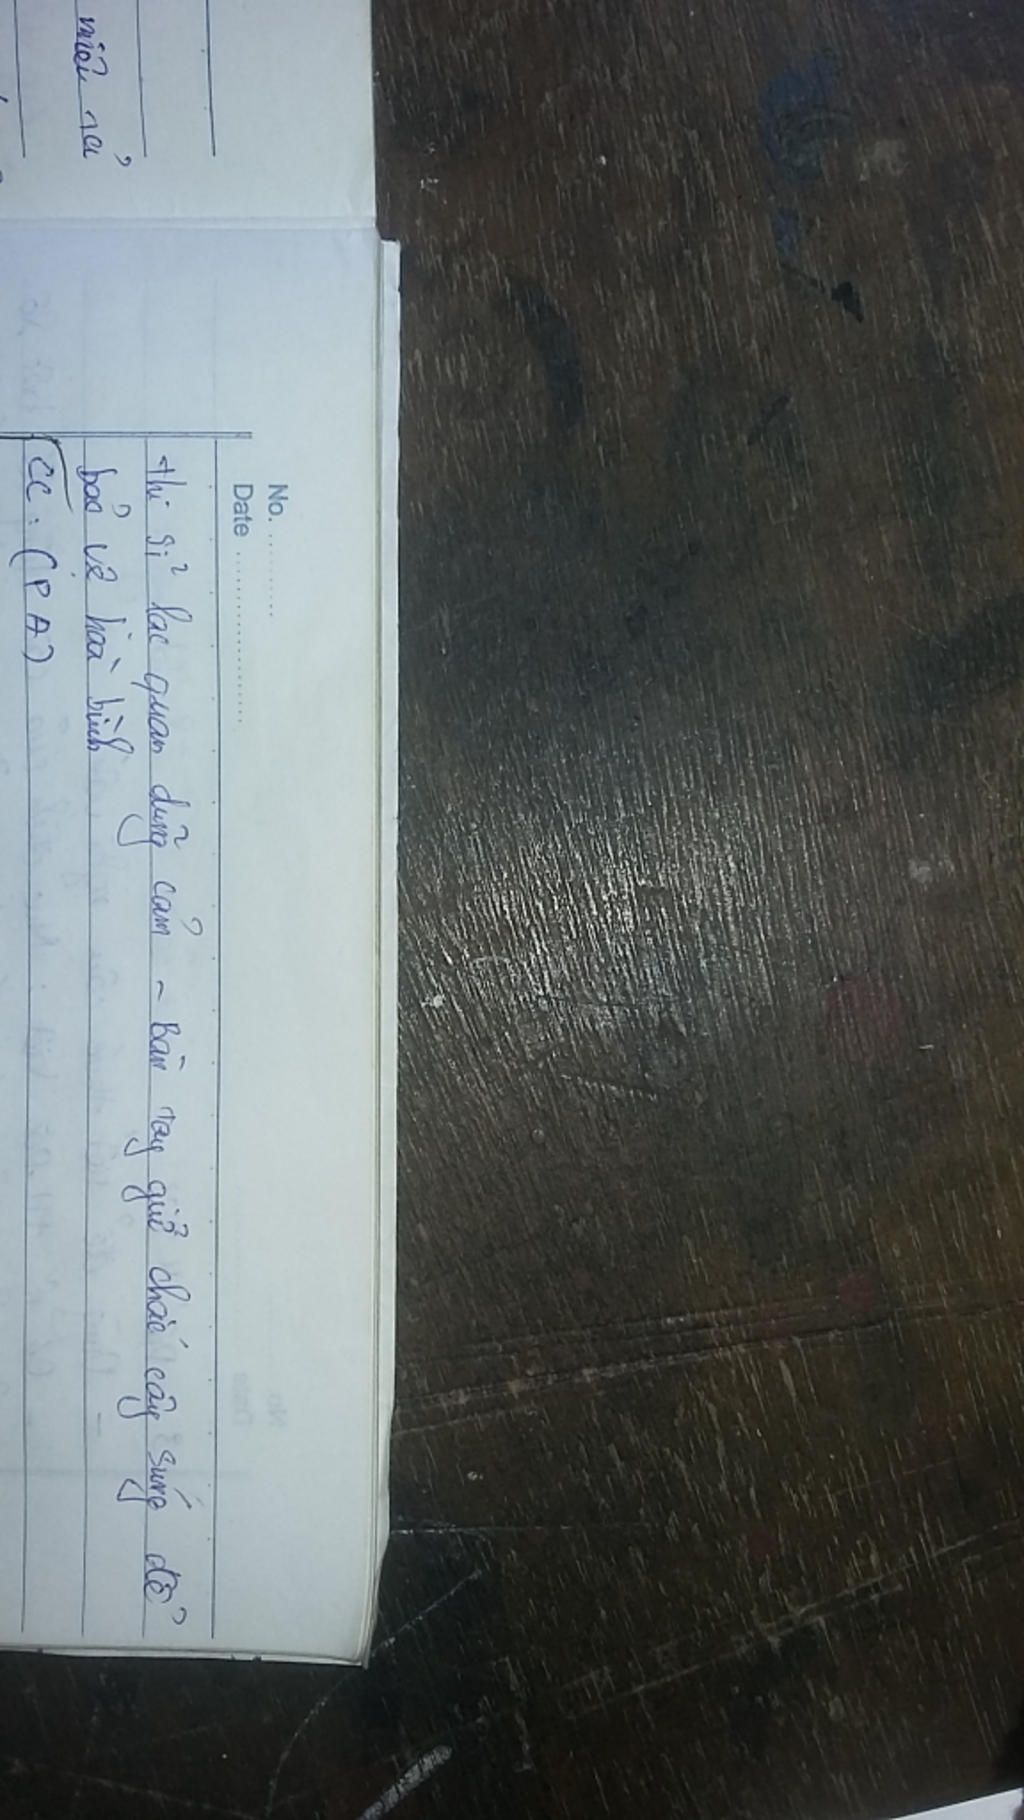 No. ..........
Date ....................
thi sĩ lạc quan dũng cảm - Bàn tay giữ chắc cây súng để
bảo vệ hoà bình
CC: (PA)